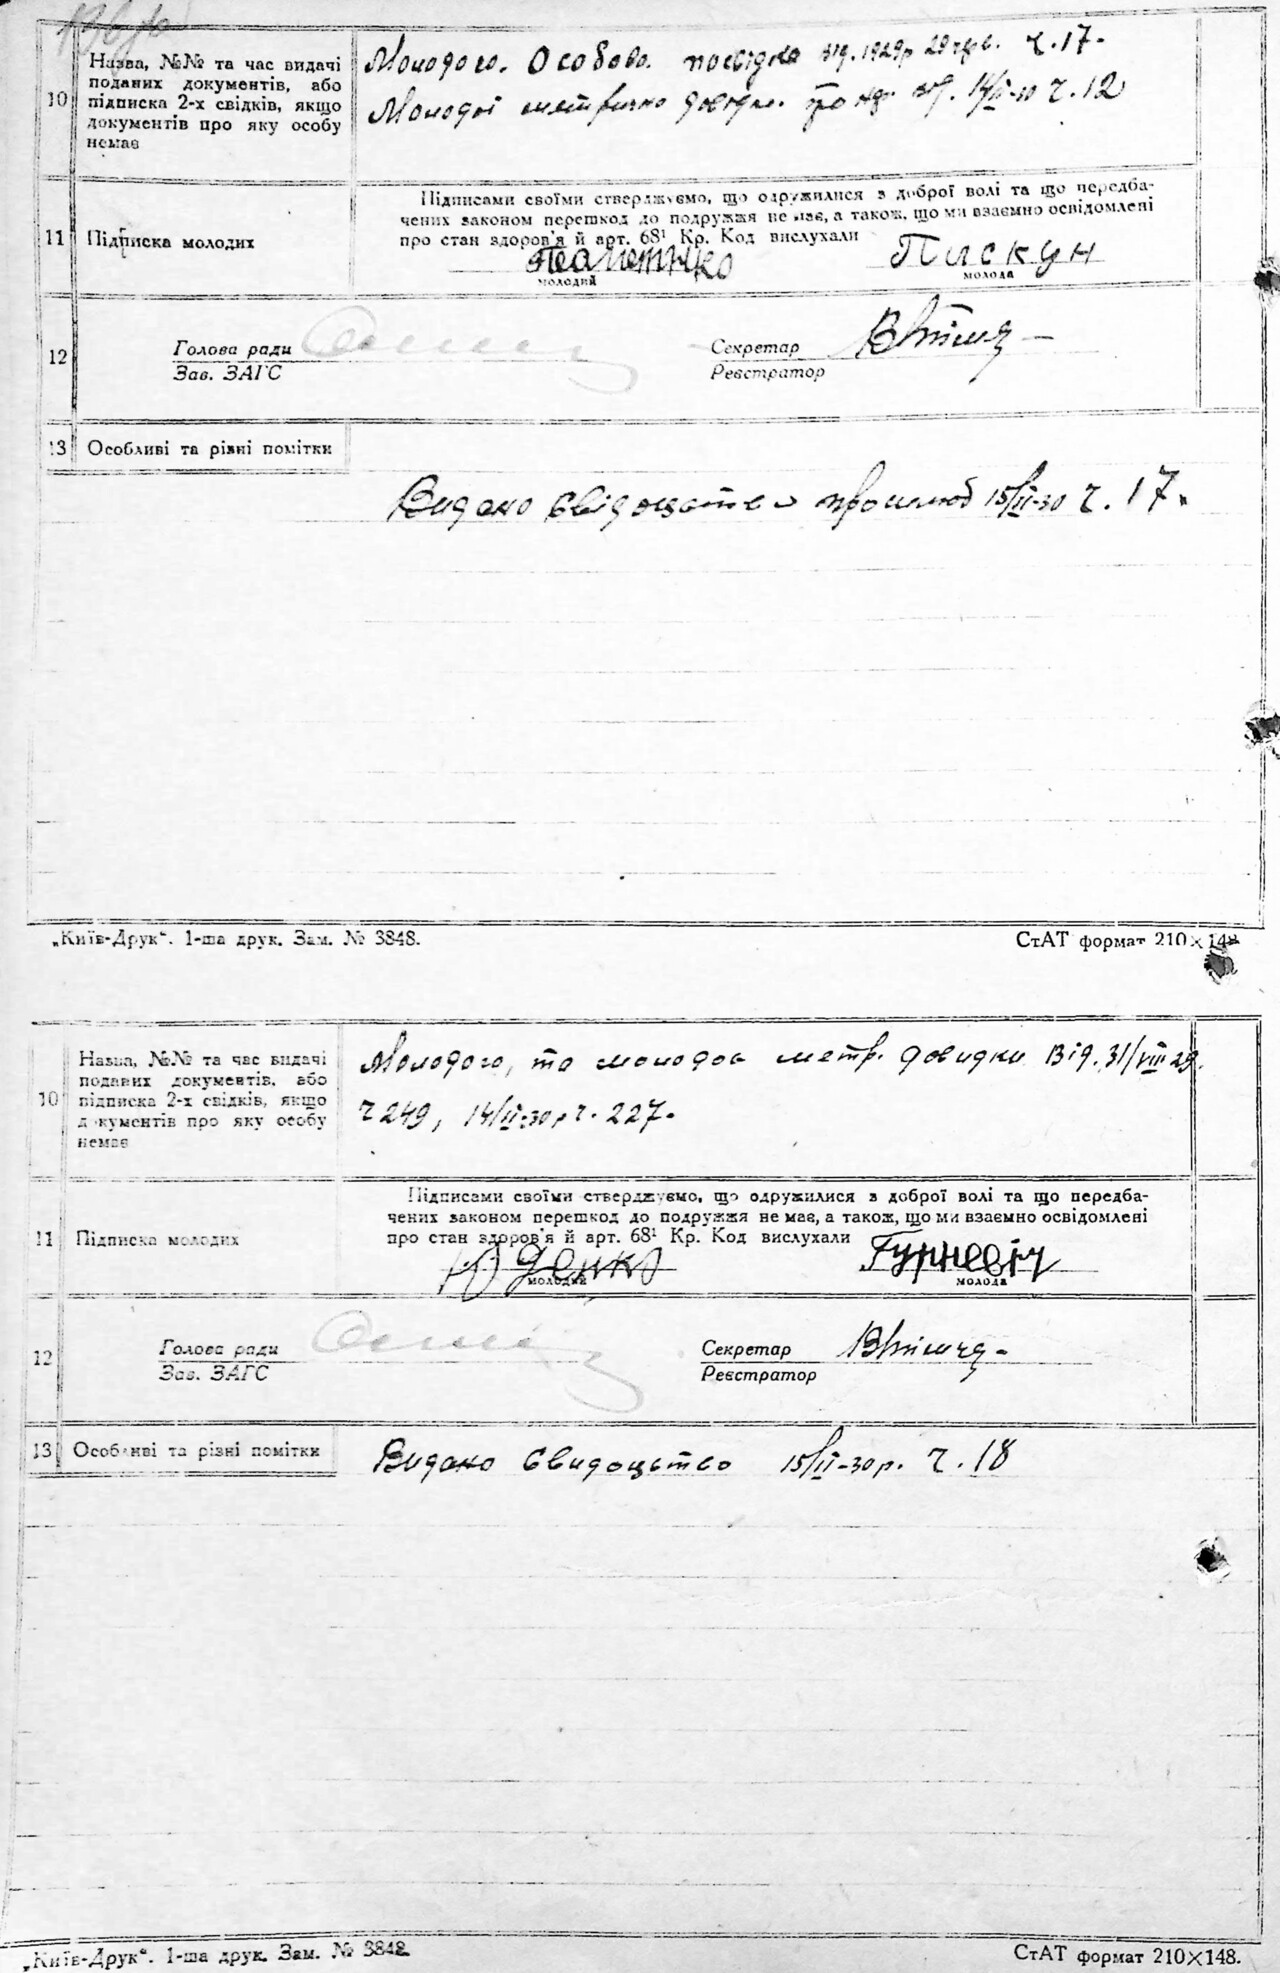 10
Назва, №№ та час видачі
поданих документів, або
підписка 2-х свідків, якщо
документів про яку особу
немає
Молодого. Особова. посвідка від. 1929р 29 ч. 17.
Молодої метрична довідк. від. 14/II-30 ч. 12
11
Підписка молодих
Підписами своїми стверджуємо, що одружилися з доброї волі та що передба-
чених законом перешкод до подружжя не має, а також, що ми взаємно освідомлені
про стан здоров'я й арт. 68¹ Кр. Код вислухали
Пискун
молодий
молода
12
Голова ради
Зав. ЗАГС
Секретар
Реєстратор
13
Особливі та різні помітки
Видано свідоцтво про шлюб 15/II-30 ч. 17.
„Київ-Друк“. 1-ша друк. Зам. № 3848.
СтАТ формат 210×148
10
Назва, №№ та час видачі
поданих документів, або
підписка 2-х свідків, якщо
документів про яку особу
немає
Молодого, та молодої метр. довидки Від. 31/VIII 29.
ч 249, 14/II-30р ч. 227.
11
Підписка молодих
Підписами своїми стверджуємо, що одружилися з доброї волі та що передба-
чених законом перешкод до подружжя не має, а також, що ми взаємно освідомлені
про стан здоров'я й арт. 68¹ Кр. Код вислухали
Гурневіч
молодий
молода
12
Голова ради
Зав. ЗАГС
Секретар
Реєстратор
13
Особливі та різні помітки
Видано Свидоцтво 15/II-30р. ч. 18
„Київ-Друк“. 1-ша друк. Зам. № 3848.
СтАТ формат 210×148.